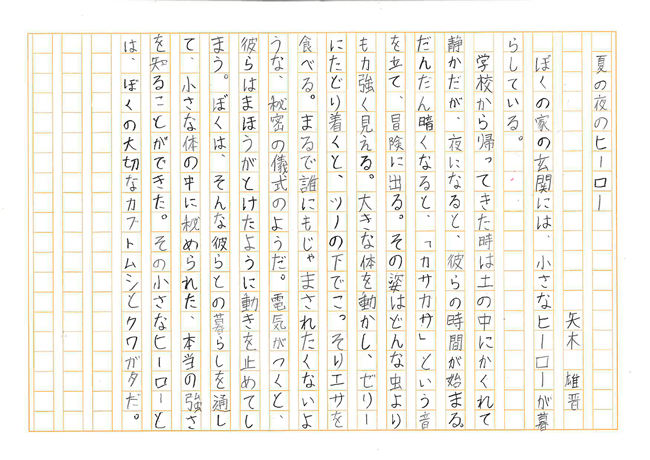 夏の夜のヒーロー
矢木 雄晋
ぼくの家の玄関には、小さなヒーローが暮
らしている。
学校から帰ってきた時は土の中にかくれて
静かだが、夜になると、彼らの時間が始まる。
だんだん暗くなると、「カサカサ」という音
を立て、冒険に出る。その姿はどんな虫より
も力強く見える。大きな体を動かし、ゼリー
にたどり着くと、ツノの下でこっそりエサを
食べる。まるで誰にもじゃまされたくないよ
うな、秘密の儀式のようだ。電気がつくと、
彼らはまほうがとけたように動きを止めてし
まう。ぼくは、そんな彼らとの暮らしを通し
て、小さな体の中に秘められた、本当の強さ
を知ることができた。その小さなヒーローと
は、ぼくの大切なカブトムシとクワガタだ。